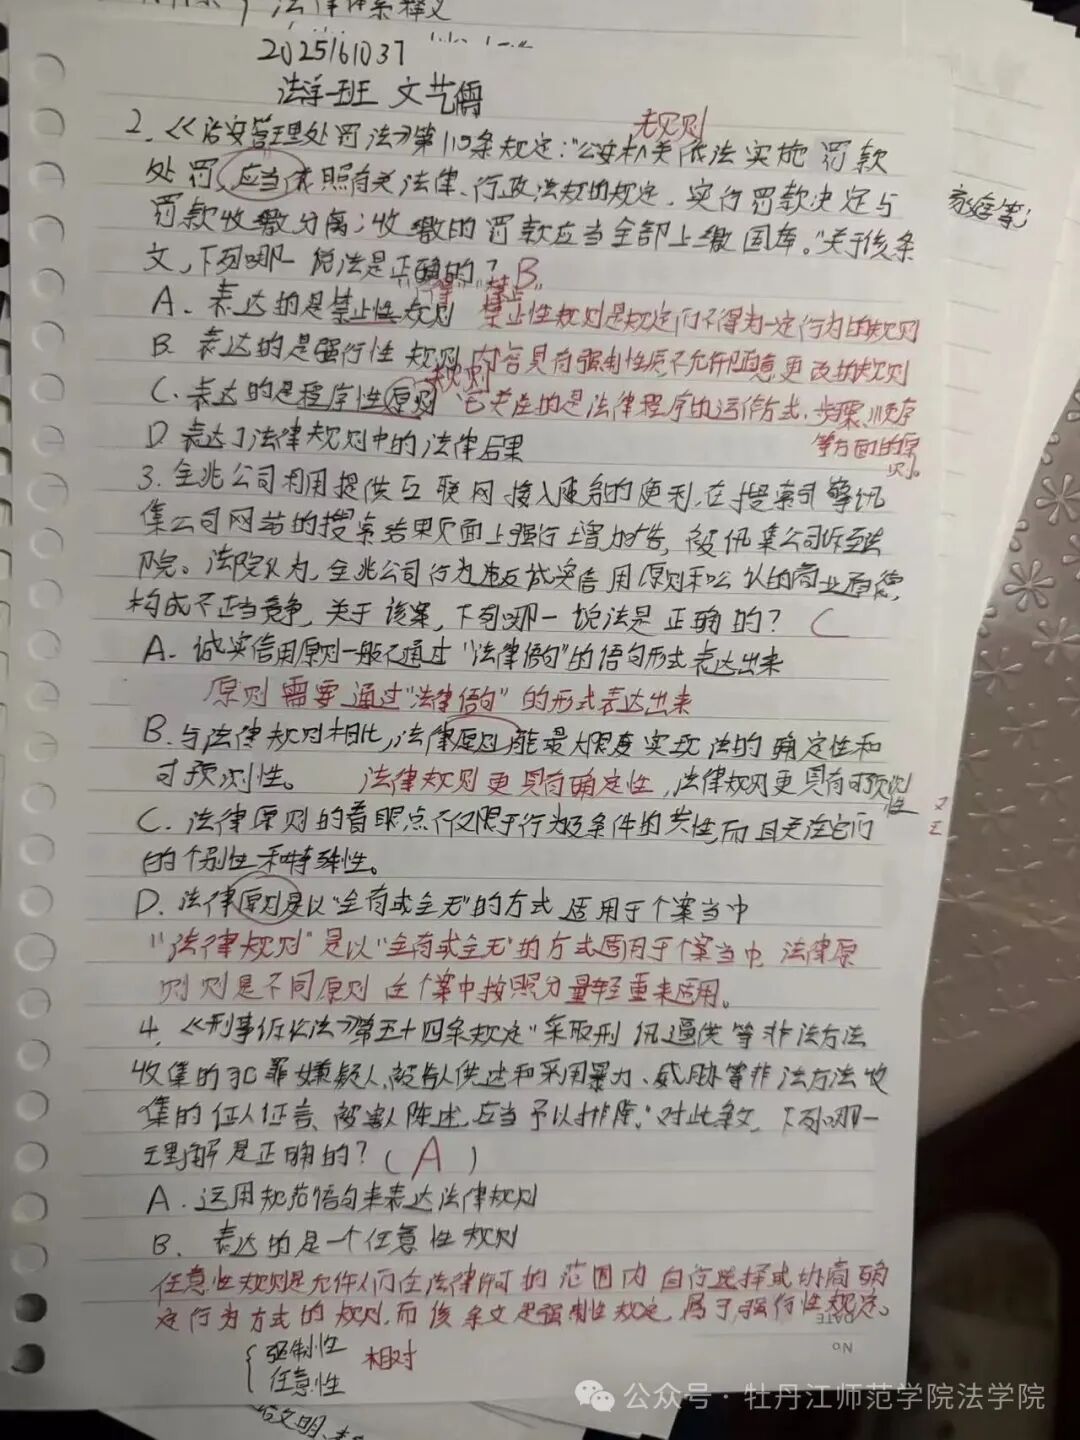 法律体系释义
2025161037
法学一班 文艺儒
无规则
2.《治安管理处罚法》第115条规定:"公安机关依法实施罚款
处罚,应当依照有关法律、行政法规的规定,实行罚款决定与
罚款收缴分离;收缴的罚款应当全部上缴国库。"关于该条
文,下列哪一说法是正确的? B
家庭等;
A. 表达的是禁止性规则 禁止性规则是规定们不得为一定行为的规则
B. 表达的是强行性规则 内容具有强制性质不允许随意更改的规则
规则
C. 表达的是程序性原则 它关注的是法律程序的运作方式、步骤、顺序
等方面的原则。
D. 表达了法律规则中的法律后果
3. 全兆公司利用提供互联网接入服务的便利,在搜索引擎讯
集公司网站的搜索结果页面上强行增加广告,被讯集公司诉至法
院。法院认为,全兆公司行为违反诚实信用原则和公认的商业道德,
构成不正当竞争,关于该案,下列哪一说法是正确的? C
A. 诚实信用原则一般不通过"法律语句"的语句形式表达出来
原则需要通过"法律语句"的形式表达出来
B. 与法律规则相比,法律原则能最大限度实现法的确定性和
可预测性。 法律规则更具有确定性,法律规则更具有可预测性
C. 法律原则的着眼点不仅限于行为及条件的共性而且关注它们
的个别性和特殊性。
D. 法律原则是以"全有或全无"的方式适用于个案当中
"法律规则"是以"全有或全无"的方式适用于个案当中,法律原
则则是不同原则在个案中按照分量轻重来适用。
4.《刑事诉讼法》第五十四条规定"采取刑讯逼供等非法方法
收集的犯罪嫌疑人、被告人供述和采用暴力、威胁等非法方法收
集的证人证言、被害人陈述,应当予以排除。"对此条文,下列哪一
理解是正确的?(A)
A. 运用规范语句来表达法律规则
B. 表达的是一个任意性规则
任意性规则是允许人们在法律许可的范围内自行选择或协商确
定行为方式的规则,而该条文是强制性规定,属于强行性规定。
强制性
任意性
相对
DATE
NO
公众号·牡丹江师范学院法学院